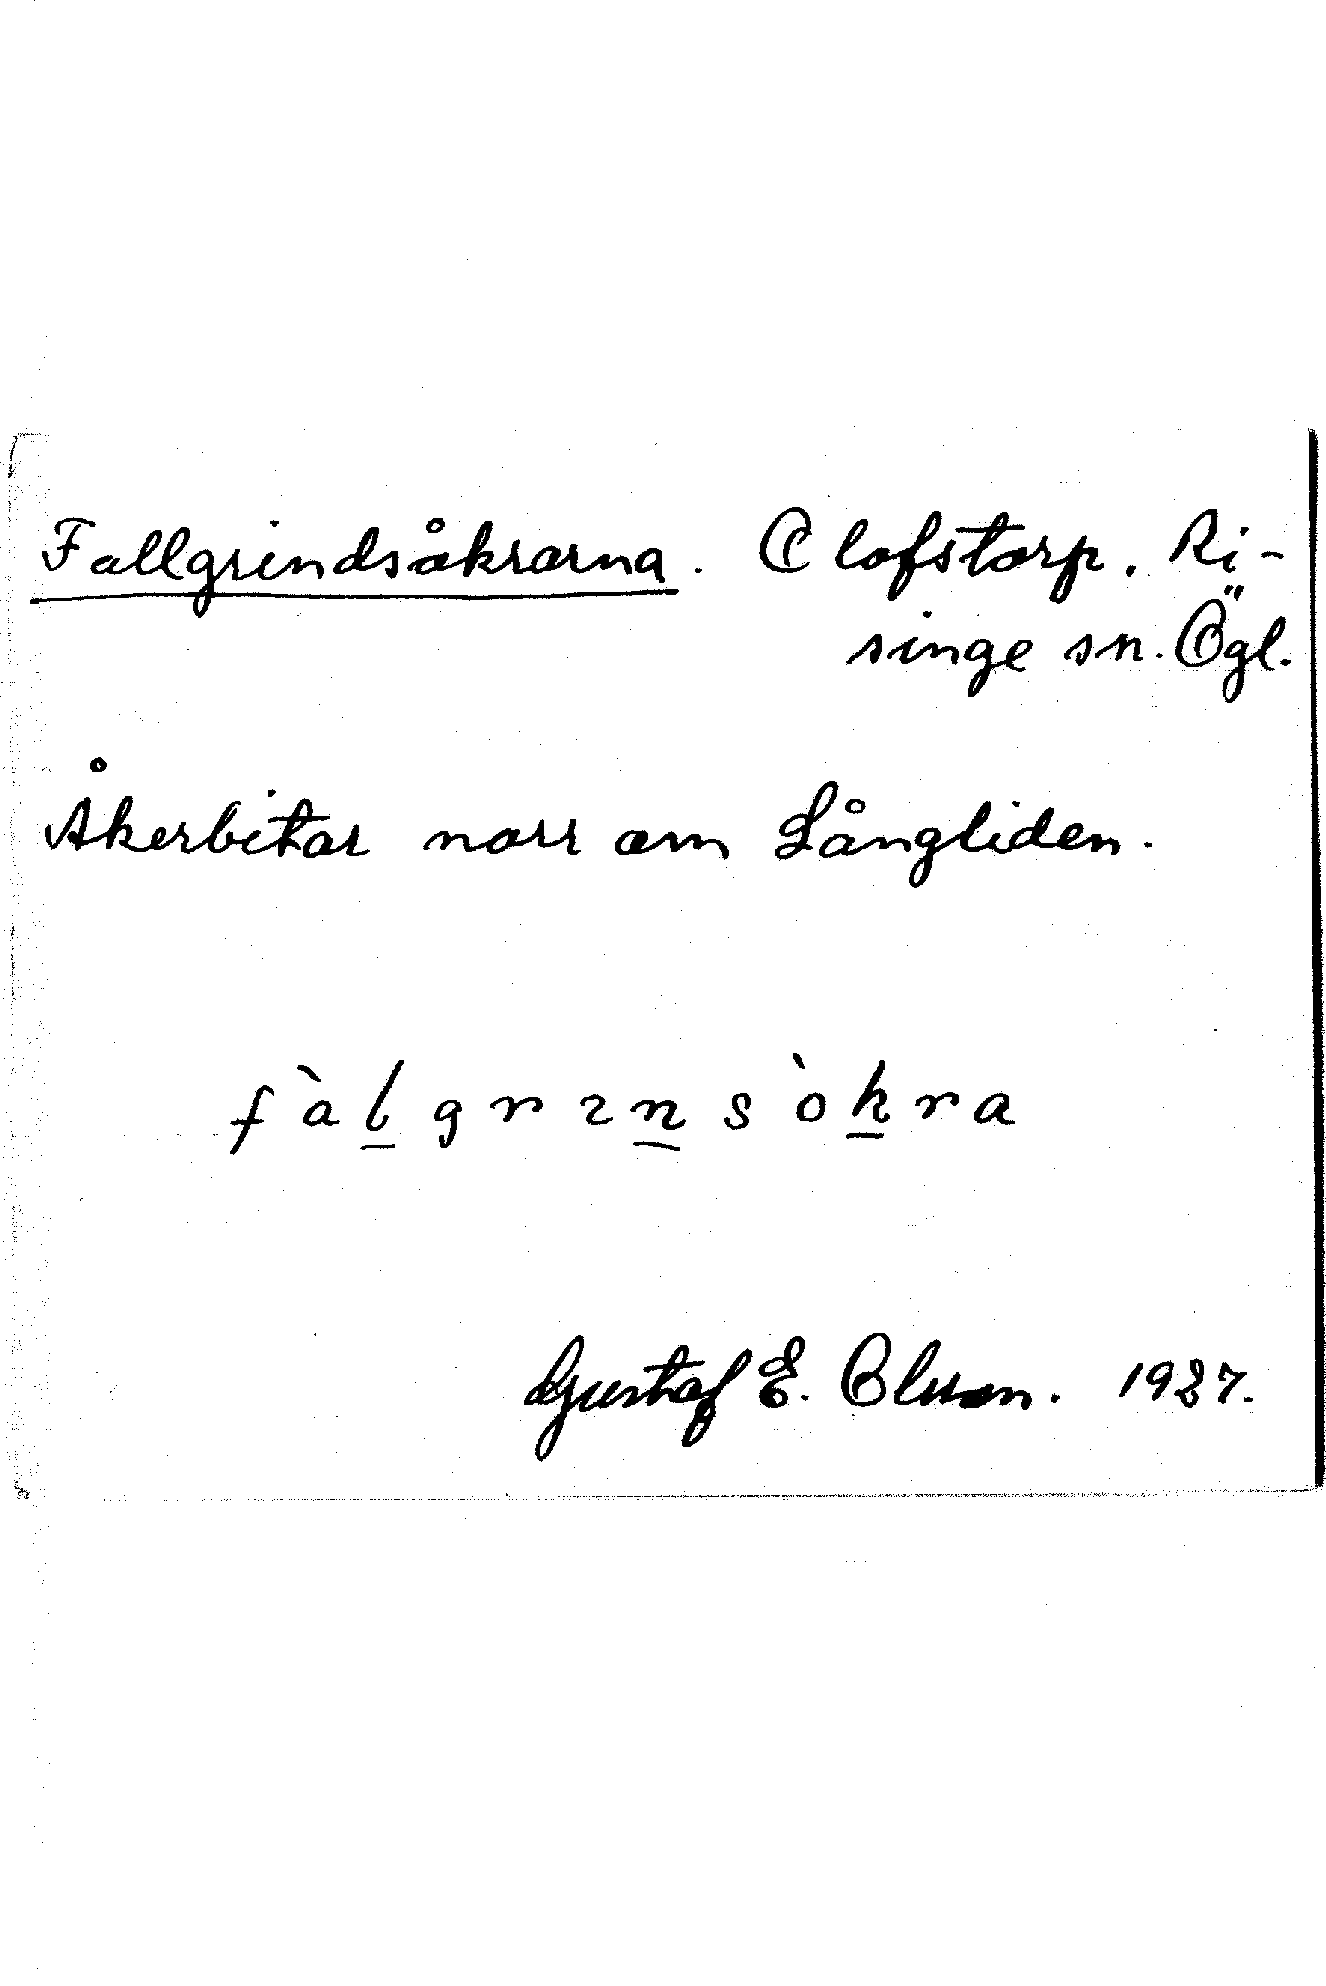 Fallgrindsåkrarna. Olofstorp. Ri-
singe sn. Ögl.
Åkerbitar norr om Långliden.
f`al̲grɪn̲s`ok̲ra
Gustaf E. Olsson. 1927.